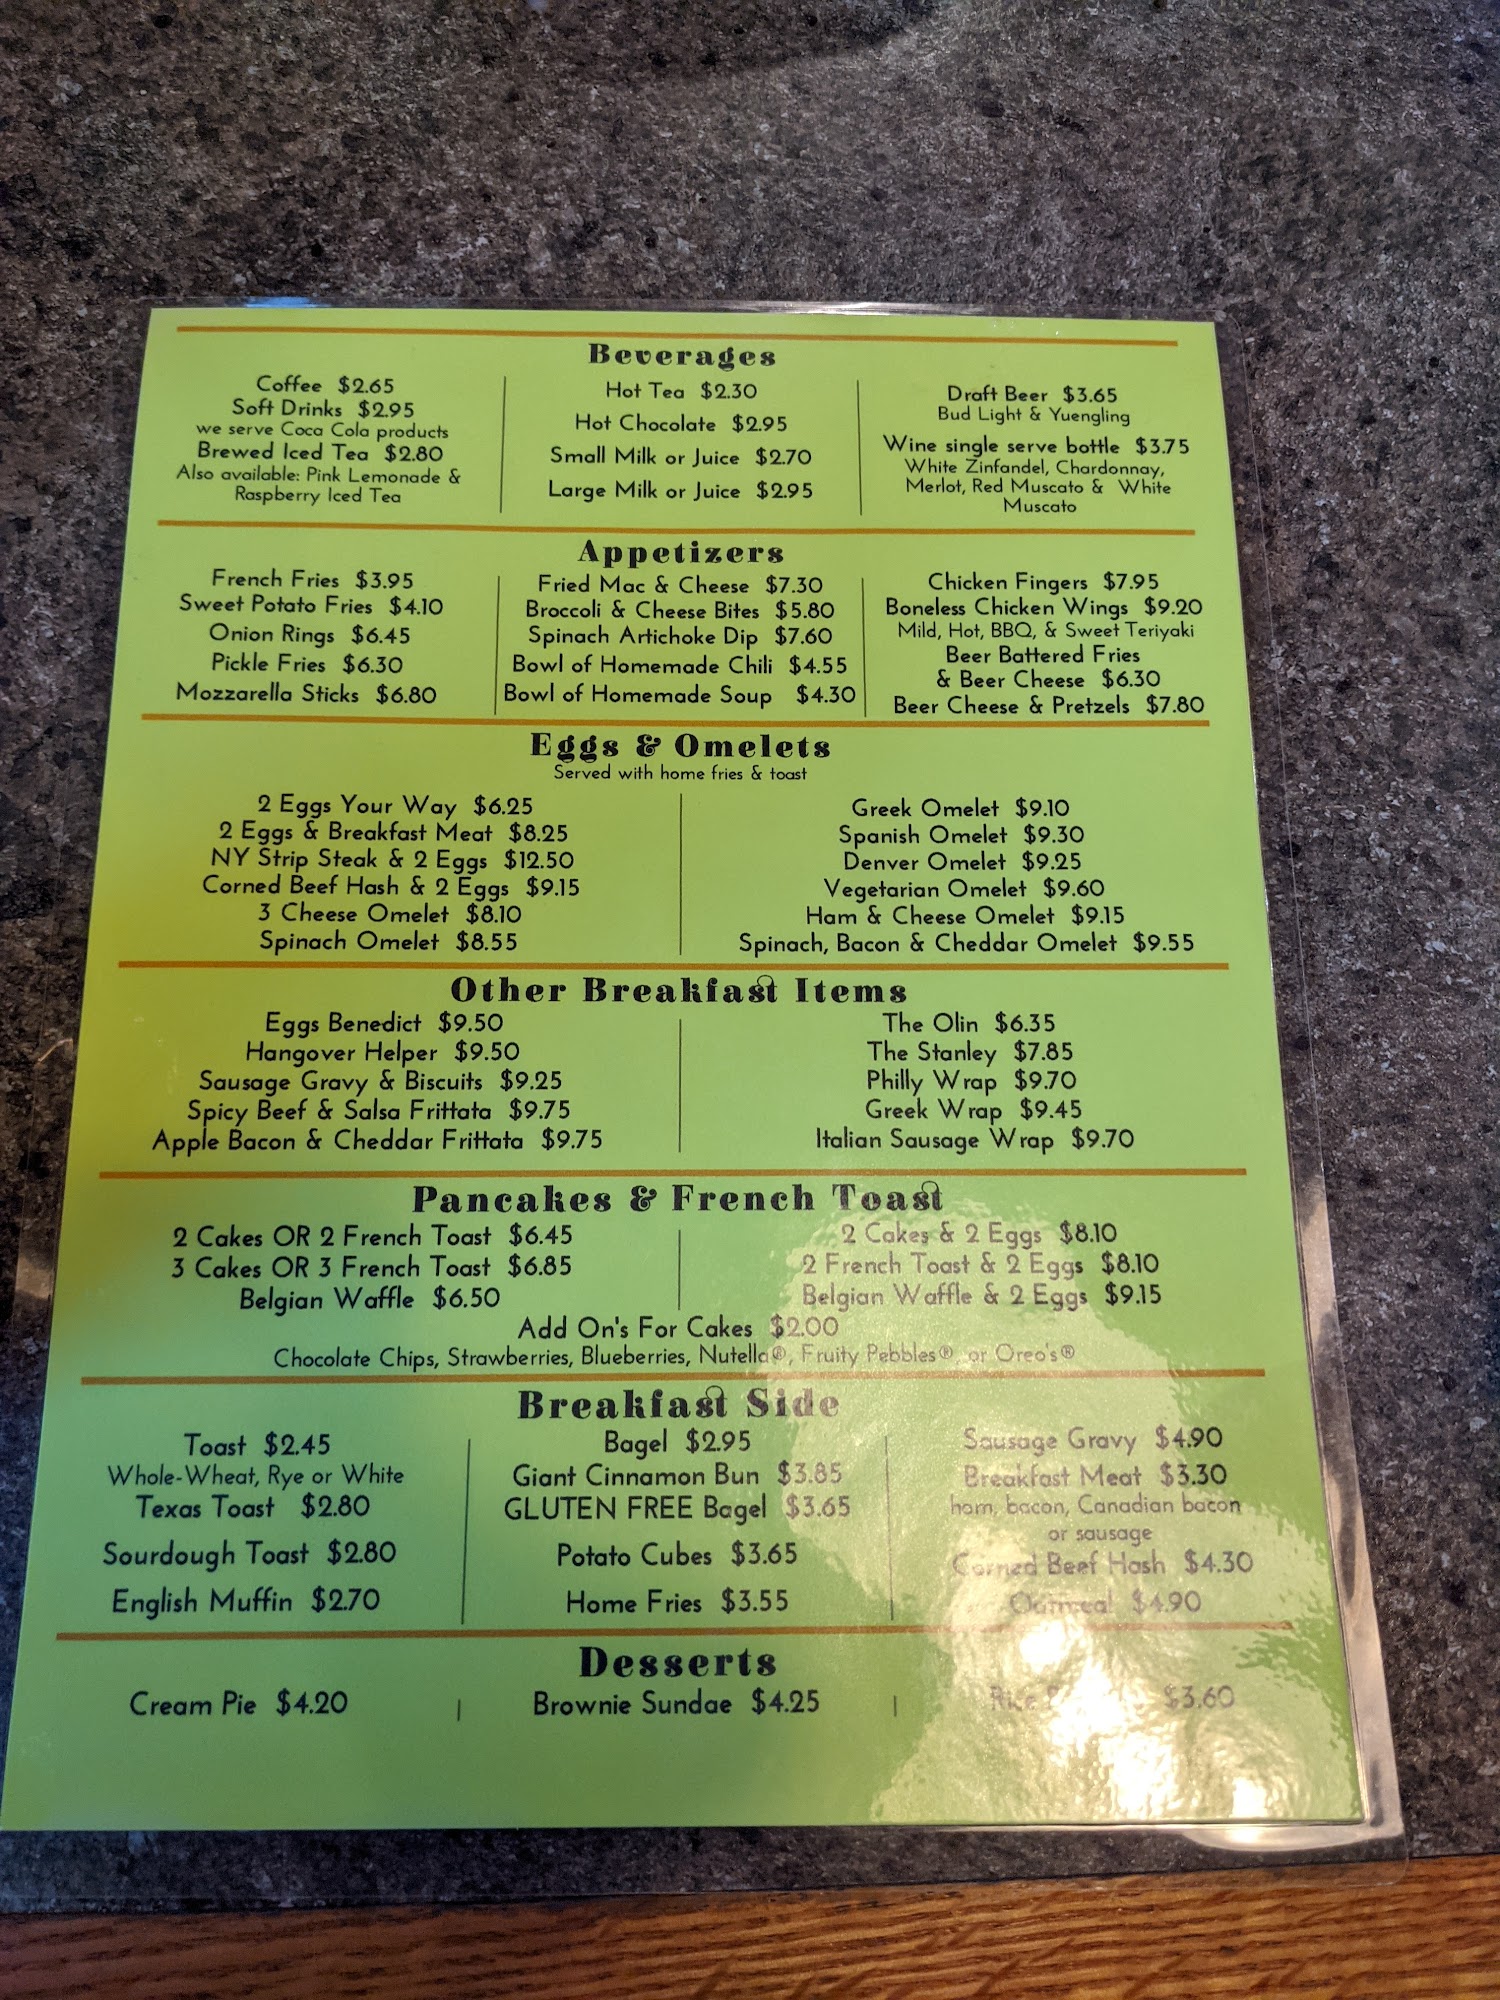 Beverages
Coffee $2.65
Soft Drinks $2.95
we serve Coca Cola products
Brewed Iced Tea $2.80
Also available: Pink Lemonade &
Raspberry Iced Tea
Hot Tea $2.30
Hot Chocolate $2.95
Small Milk or Juice $2.70
Large Milk or Juice $2.95
Draft Beer $3.65
Bud Light & Yuengling
Wine single serve bottle $3.75
White Zinfandel, Chardonnay,
Merlot, Red Muscato & White
Muscato
Appetizers
French Fries $3.95
Sweet Potato Fries $4.10
Onion Rings $6.45
Pickle Fries $6.30
Mozzarella Sticks $6.80
Fried Mac & Cheese $7.30
Broccoli & Cheese Bites $5.80
Spinach Artichoke Dip $7.60
Bowl of Homemade Chili $4.55
Bowl of Homemade Soup $4.30
Chicken Fingers $7.95
Boneless Chicken Wings $9.20
Mild, Hot, BBQ, & Sweet Teriyaki
Beer Battered Fries
& Beer Cheese $6.30
Beer Cheese & Pretzels $7.80
Eggs & Omelets
Served with home fries & toast
2 Eggs Your Way $6.25
2 Eggs & Breakfast Meat $8.25
NY Strip Steak & 2 Eggs $12.50
Corned Beef Hash & 2 Eggs $9.15
3 Cheese Omelet $8.10
Spinach Omelet $8.55
Greek Omelet $9.10
Spanish Omelet $9.30
Denver Omelet $9.25
Vegetarian Omelet $9.60
Ham & Cheese Omelet $9.15
Spinach, Bacon & Cheddar Omelet $9.55
Other Breakfast Items
Eggs Benedict $9.50
Hangover Helper $9.50
Sausage Gravy & Biscuits $9.25
Spicy Beef & Salsa Frittata $9.75
Apple Bacon & Cheddar Frittata $9.75
The Olin $6.35
The Stanley $7.85
Philly Wrap $9.70
Greek Wrap $9.45
Italian Sausage Wrap $9.70
Pancakes & French Toast
2 Cakes OR 2 French Toast $6.45
3 Cakes OR 3 French Toast $6.85
Belgian Waffle $6.50
2 Cakes & 2 Eggs $8.10
2 French Toast & 2 Eggs $8.10
Belgian Waffle & 2 Eggs $9.15
Add On's For Cakes $2.00
Chocolate Chips, Strawberries, Blueberries, Nutella®, Fruity Pebbles®, or Oreo's®
Breakfast Side
Toast $2.45
Whole-Wheat, Rye or White
Texas Toast $2.80
Sourdough Toast $2.80
English Muffin $2.70
Bagel $2.95
Giant Cinnamon Bun $3.85
GLUTEN FREE Bagel $3.65
Potato Cubes $3.65
Home Fries $3.55
Sausage Gravy $4.90
Breakfast Meat $3.30
ham, bacon, Canadian bacon
or sausage
Corned Beef Hash $4.30
Oatmeal $4.90
Desserts
Cream Pie $4.20
Brownie Sundae $4.25
Rice $3.60